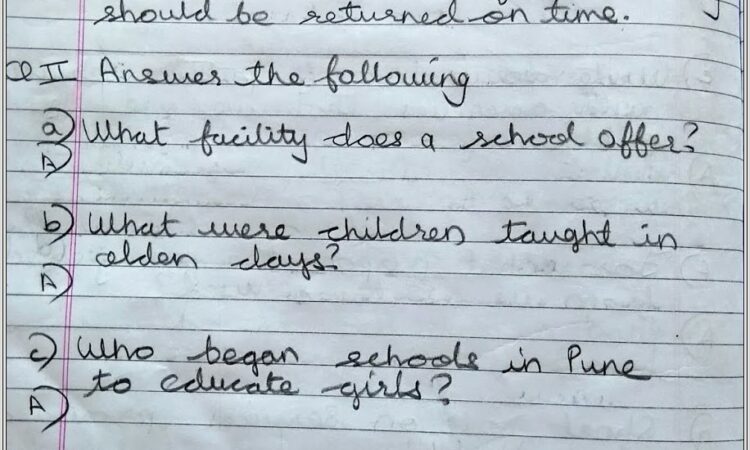 should be returned on time.
Q II Answer the following
a) What facility does a school offer?
A)
b) What were children taught in
olden days?
A)
c) Who began schools in Pune
to educate girls?
A)